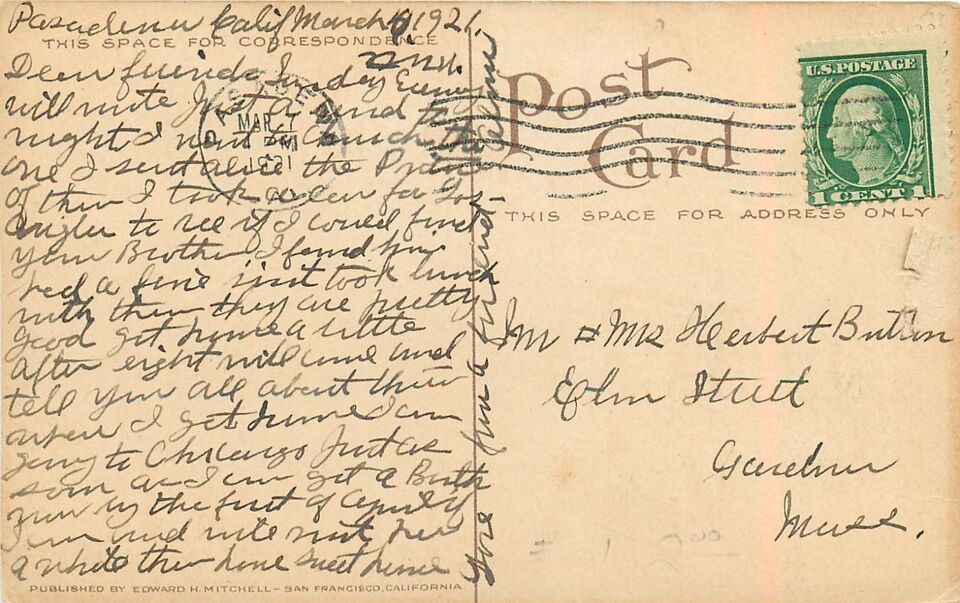 Pasadena Calif March 6 1921
THIS SPACE FOR CORRESPONDENCE
Dear friends Sunday Eveng
will write Just a
night I went to Church the
one I sent alice the
of then I took a car for Los
Angles to see if I could find
your Brother I found him
had a fine just took lunch
with them they are pretty
good got home a little
after eight will come and
tell you all about them
when I get home I am
going to Chicargo Just as
soon as I can get a Birth
now by the first of
I am and
a while then home sweet home
PUBLISHED BY EDWARD H. MITCHELL – SAN FRANCISCO, CALIFORNIA.
Love from a friend
PASADENA
MAR 7
PM
1921
CAL
Post
Card
THIS SPACE FOR ADDRESS ONLY
U.S. POSTAGE
1 CENT 1
Mr & Mrs Herbert
Elm Street
Gardner
Mass.